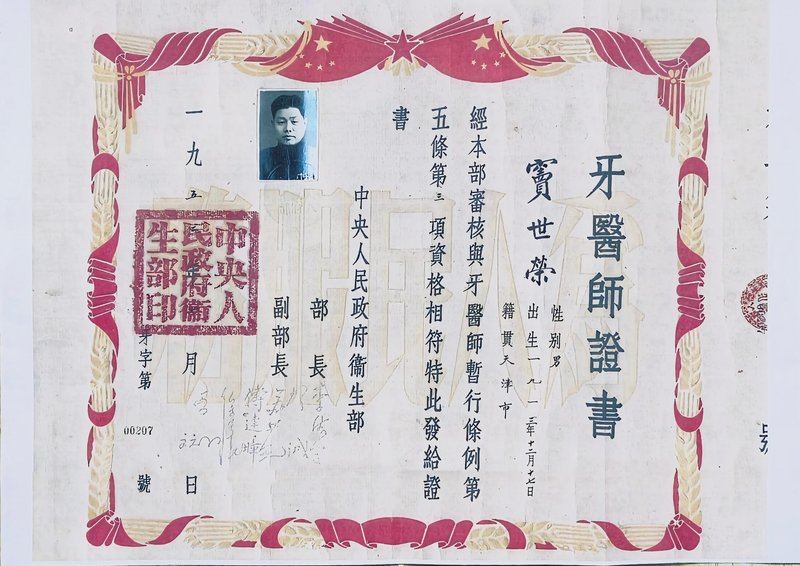 牙醫師證書
竇世榮
性別男
出生一九一三年十二月十七日
籍貫天津市
經本部審核與牙醫師暫行條例第
五條第三項資格相符特此發給證
書
中央人民政府衞生部
部長
副部長
一九五三年月日
中央人
民政府衞
生部印
牙字第00207號